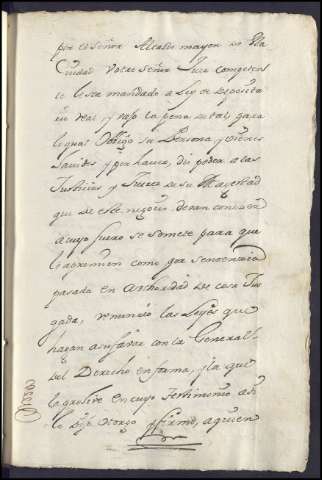 por el Señor Alcalde mayor de esta
Ciudad u otro Señor Juez competente
le sea mandado a Ley de Deposito
en Real, y vajo la pena de tal, para
lo qual Obligo su Persona, y vienes
havidos y por haver, dio poder a las
Justicias y Jueces de su Magestad
que de este negocio devan conocer
a cuyo fuero se somete para que
lo apremien como por sentencia
pasada en Authoridad de cosa Juz
gada, renuncio las Leyes que
hagan a su favor con la General
del Derecho en forma, y la que
la proive en cuyo Testimonio asi
lo Dijo Otorgó y firmó, a quien